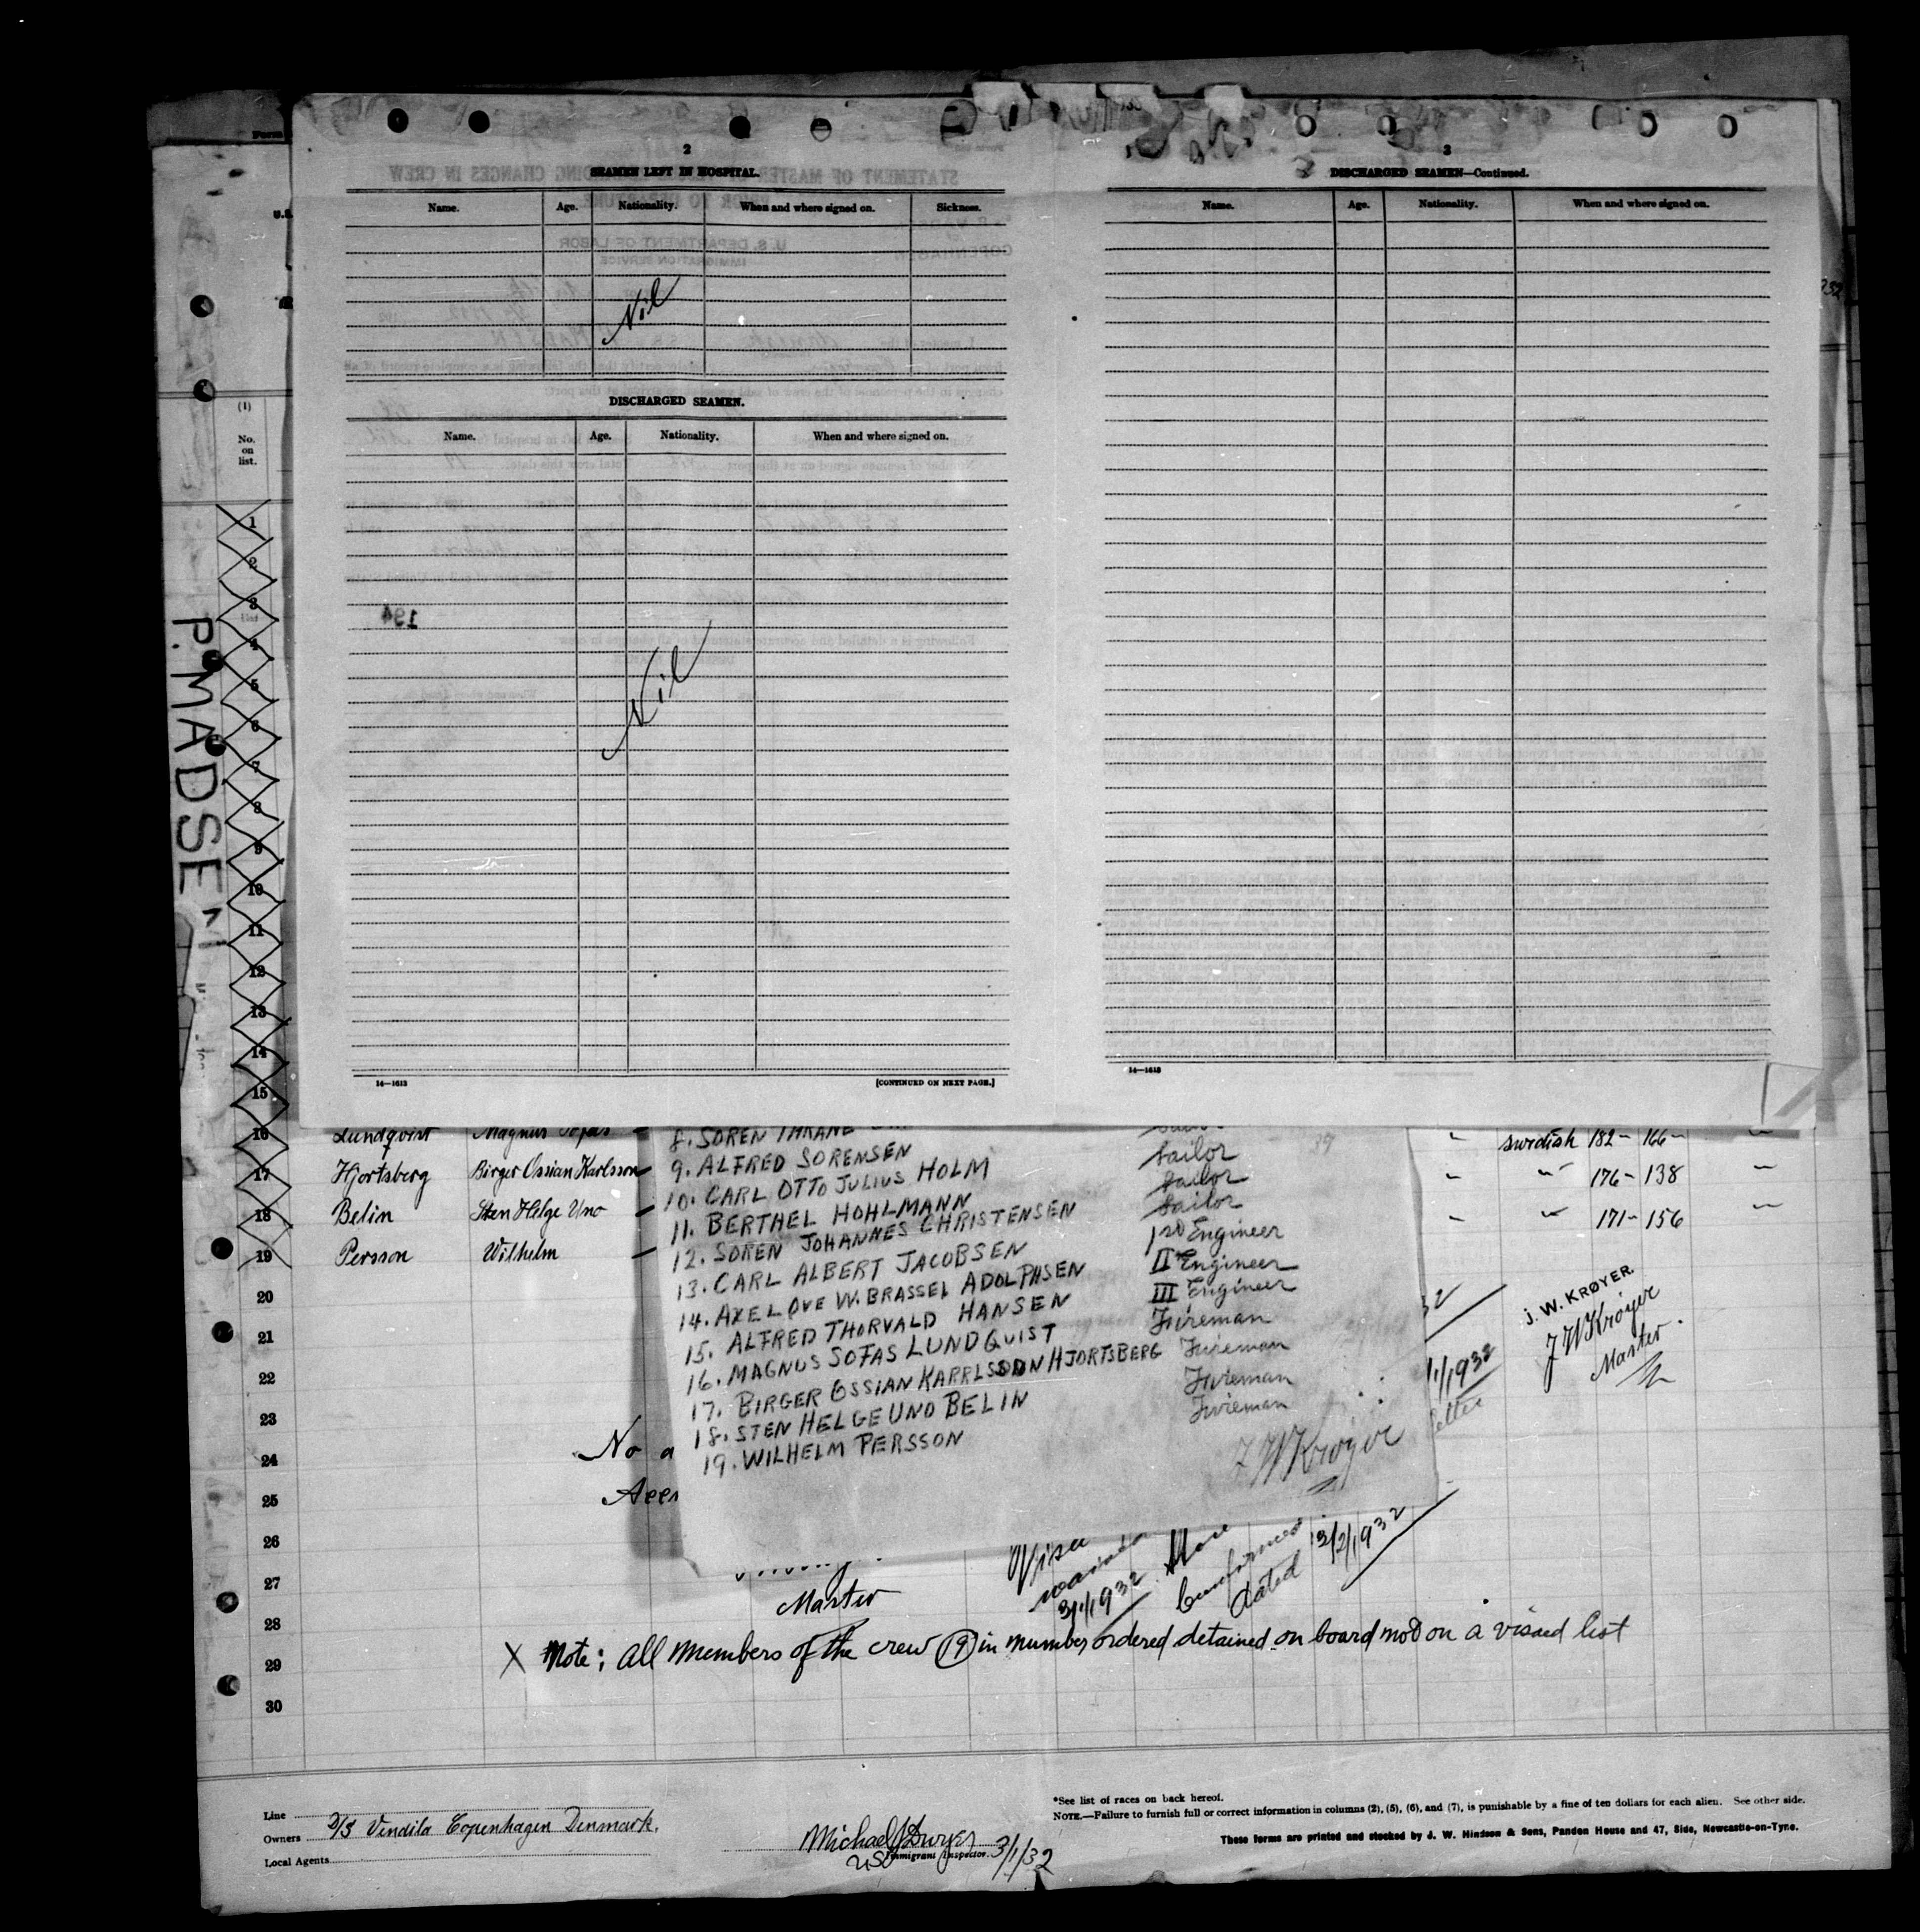 2
SEAMEN LEFT IN HOSPITAL.
Name. Age. Nationality. When and where signed on. Sickness.
Nil
DISCHARGED SEAMEN.
Name. Age. Nationality. When and where signed on.
Nil
14—1613
[CONTINUED ON NEXT PAGE.]
3
DISCHARGED SEAMEN—Continued.
Name. Age. Nationality. When and where signed on.
14—1613
Form
U.S.
(1)
No.
on
list.
P. MADSEN
1
2
3
4
5
6
7
8
9
10
11
12
13
14
15
16 Lundqvist Magnus Sofas swedish 182 - 166 -
17 Hjortsberg Birger Ossian Karlsson 176 - 138
18 Belin Sten Helge Uno 171 - 156
19 Persson Wilhelm
20
21
22
23
24
25
26
27
28
29
30
8. SOREN THRANE
9. ALFRED SORENSEN Sailor
10. CARL OTTO JULIUS HOLM Sailor
11. BERTHEL HOHLMANN Sailor
12. SOREN JOHANNES CHRISTENSEN 1st Engineer
13. CARL ALBERT JACOBSEN II Engineer
14. AXEL OVE W. BRASSEL ADOLPHSEN III Engineer
15. ALFRED THORVALD HANSEN Fireman
16. MAGNUS SOFAS LUNDQUIST Fireman
17. BIRGER OSSIAN KARRLSSON HJORTSBERG Fireman
18. STEN HELGE UNO BELIN Fireman
19. WILHELM PERSSON
J W Krøyer
J. W. KRØYER.
J W Krøyer
Master.
1/1932
No a
Master
Visa
3/1/1932
dated 13/2/1932
X Note: all members of the crew (19) in number ordered detained on board not on a visaed list
Line
Owners D/S Vendila Copenhagen Denmark.
Local Agents
Michael J Dwyer
Immigrant Inspector. 3/1/32
*See list of races on back hereof.
NOTE.—Failure to furnish full or correct information in columns (2), (5), (6), and (7), is punishable by a fine of ten dollars for each alien. See other side.
These forms are printed and stocked by J. W. Hindson & Sons, Pandon House and 47, Side, Newcastle-on-Tyne.